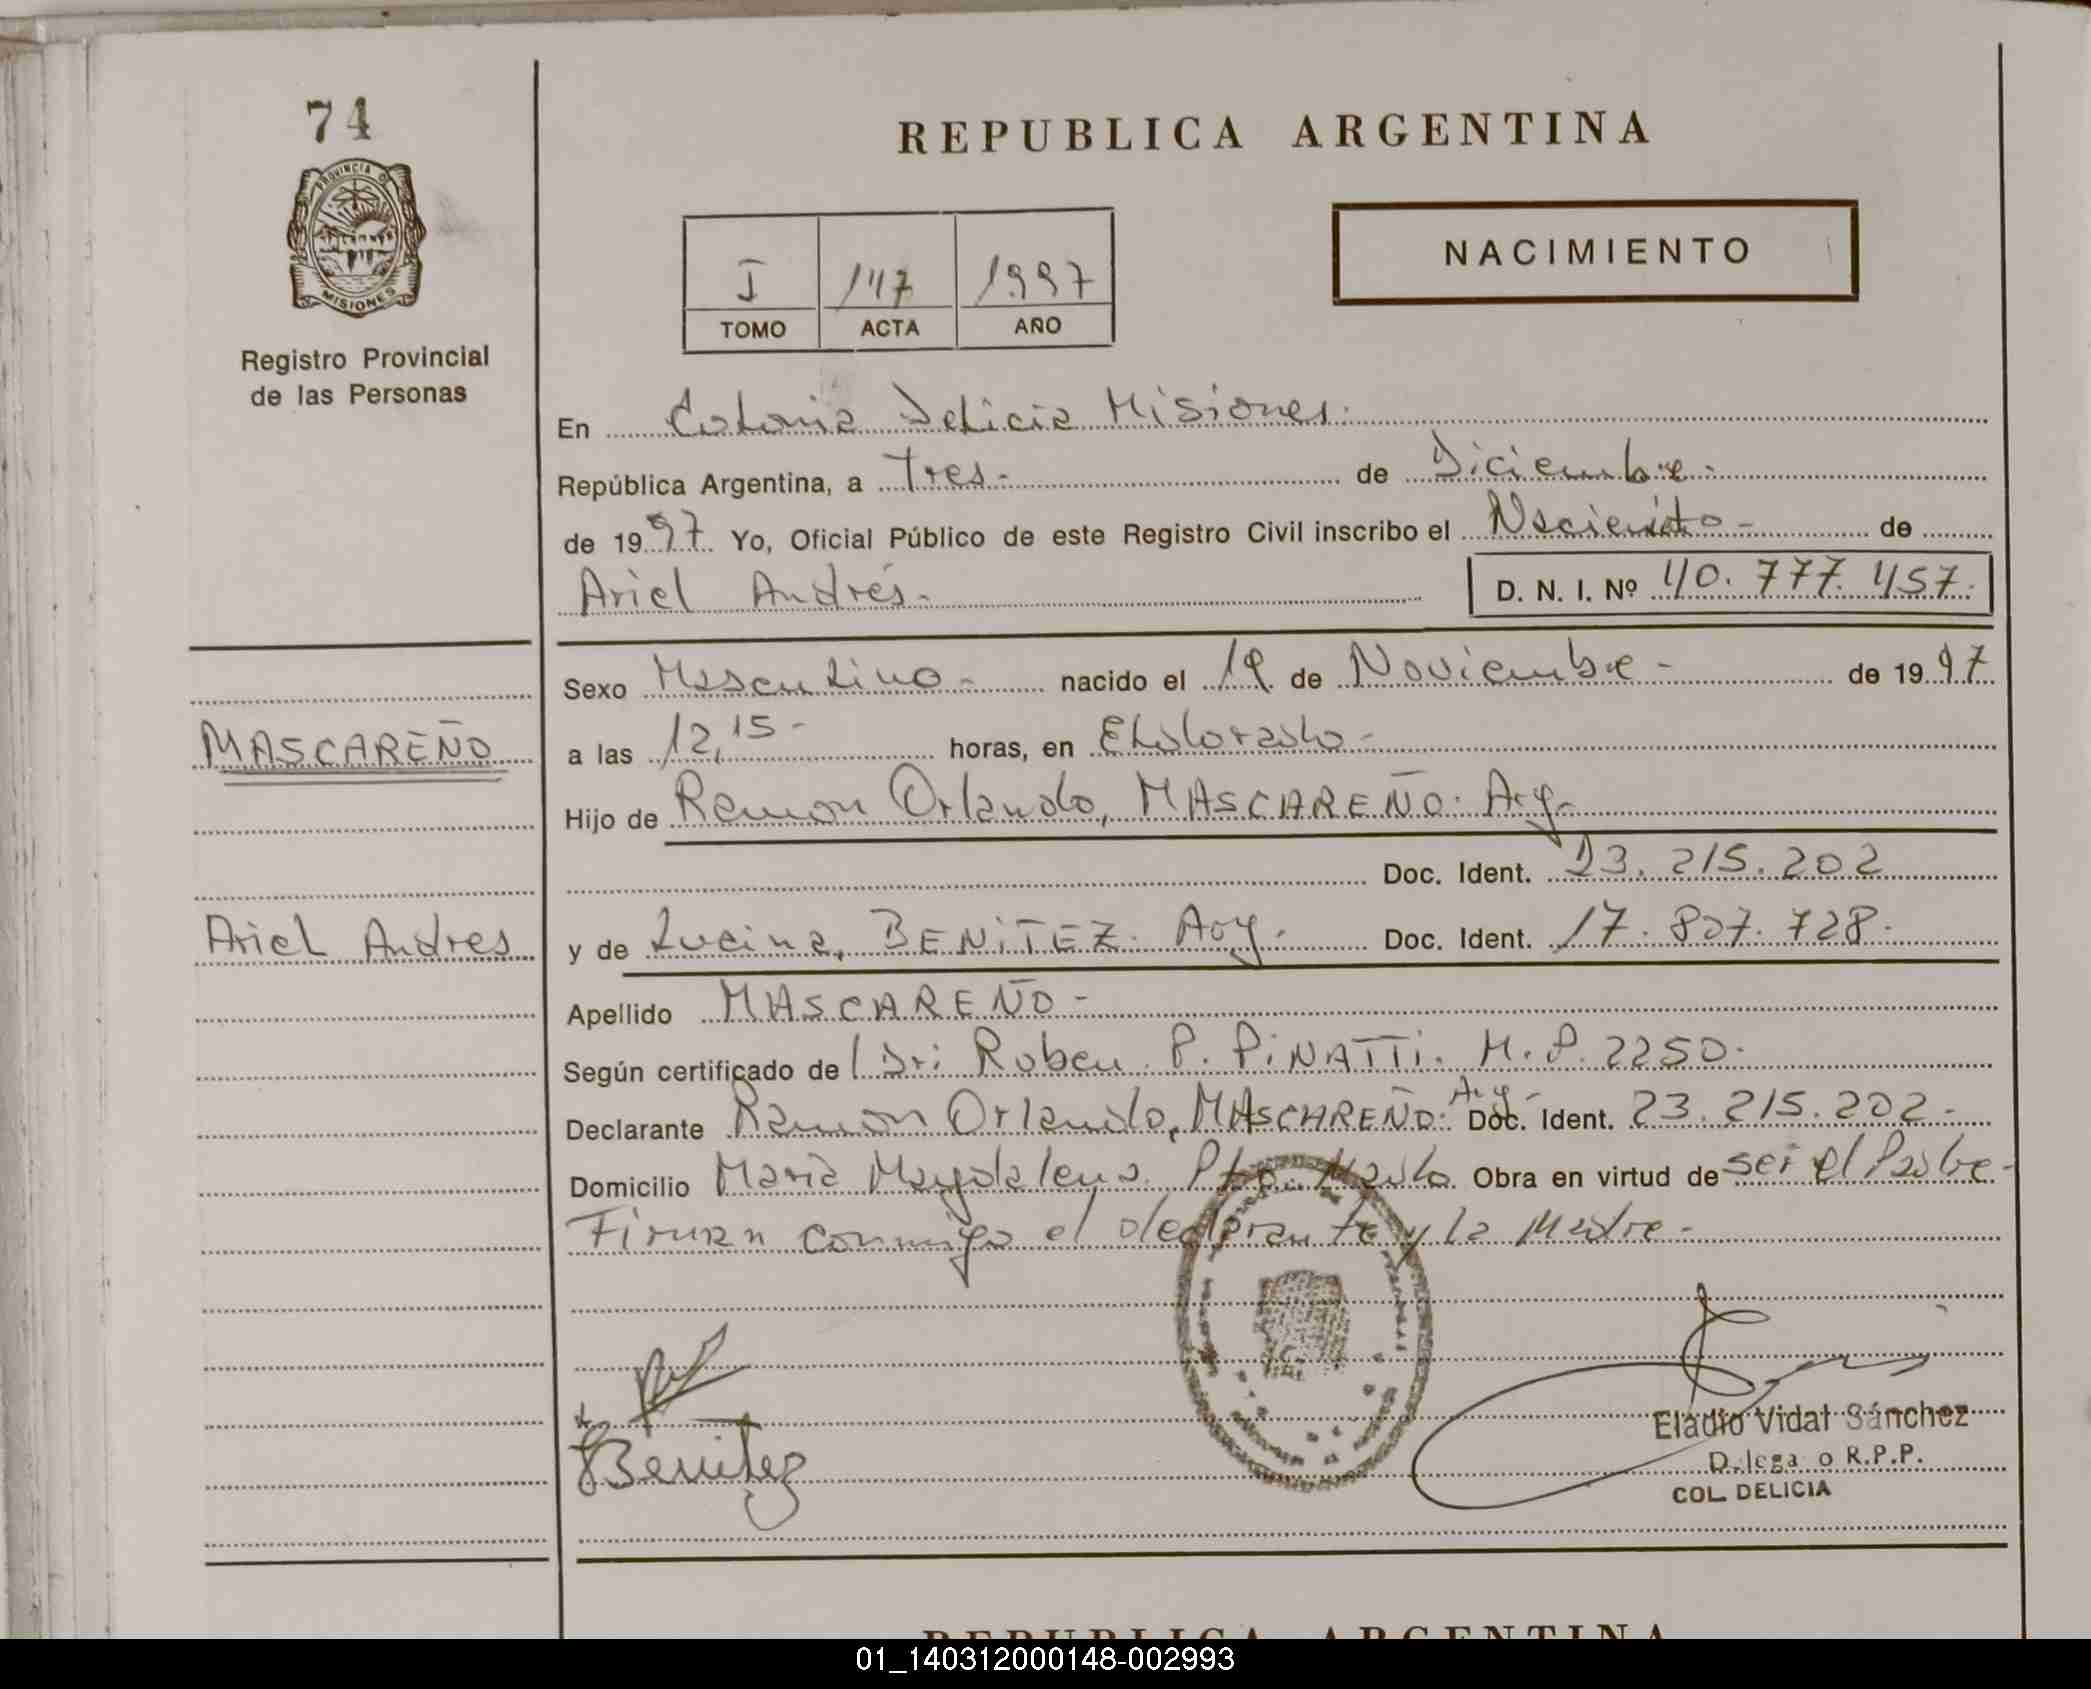 74
PROVINCIA DE
MISIONES
Registro Provincial
de las Personas
MASCAREÑO
Ariel Andres
REPUBLICA ARGENTINA
NACIMIENTO
I 147 1997
TOMO ACTA AÑO
En Colonia Delicia Misiones.
República Argentina, a Tres- de Diciembre-
de 1997 Yo, Oficial Público de este Registro Civil inscribo el de
Ariel Andrés- D. N. I. Nº 40.777.457.
Sexo Masculino- nacido el de Noviembre- de 1997
a las 12,15- horas, en Eldorado-
Hijo de Ramon Orlando, MASCAREÑO. Arg.
Doc. Ident. 23.215.202
y de Lucina, BENiTEZ. Arg. Doc. Ident. 17.807.728.
Apellido MASCAREÑO-
Según certificado de Dr: Ruben P. PiNATTi. M.P. 2250.
Declarante Ramon Orlando, MASCAREÑO. Arg- Doc. Ident. 23.215.202-
Domicilio Maria Magdalena. Pto. Obra en virtud de ser el Padre-
Firman conmigo el declarante y la Madre-
Benitez
Eladio Vidal Sánchez
Delega o R.P.P.
COL. DELICIA
REPUBLICA ARGENTINA
01_140312000148-002993